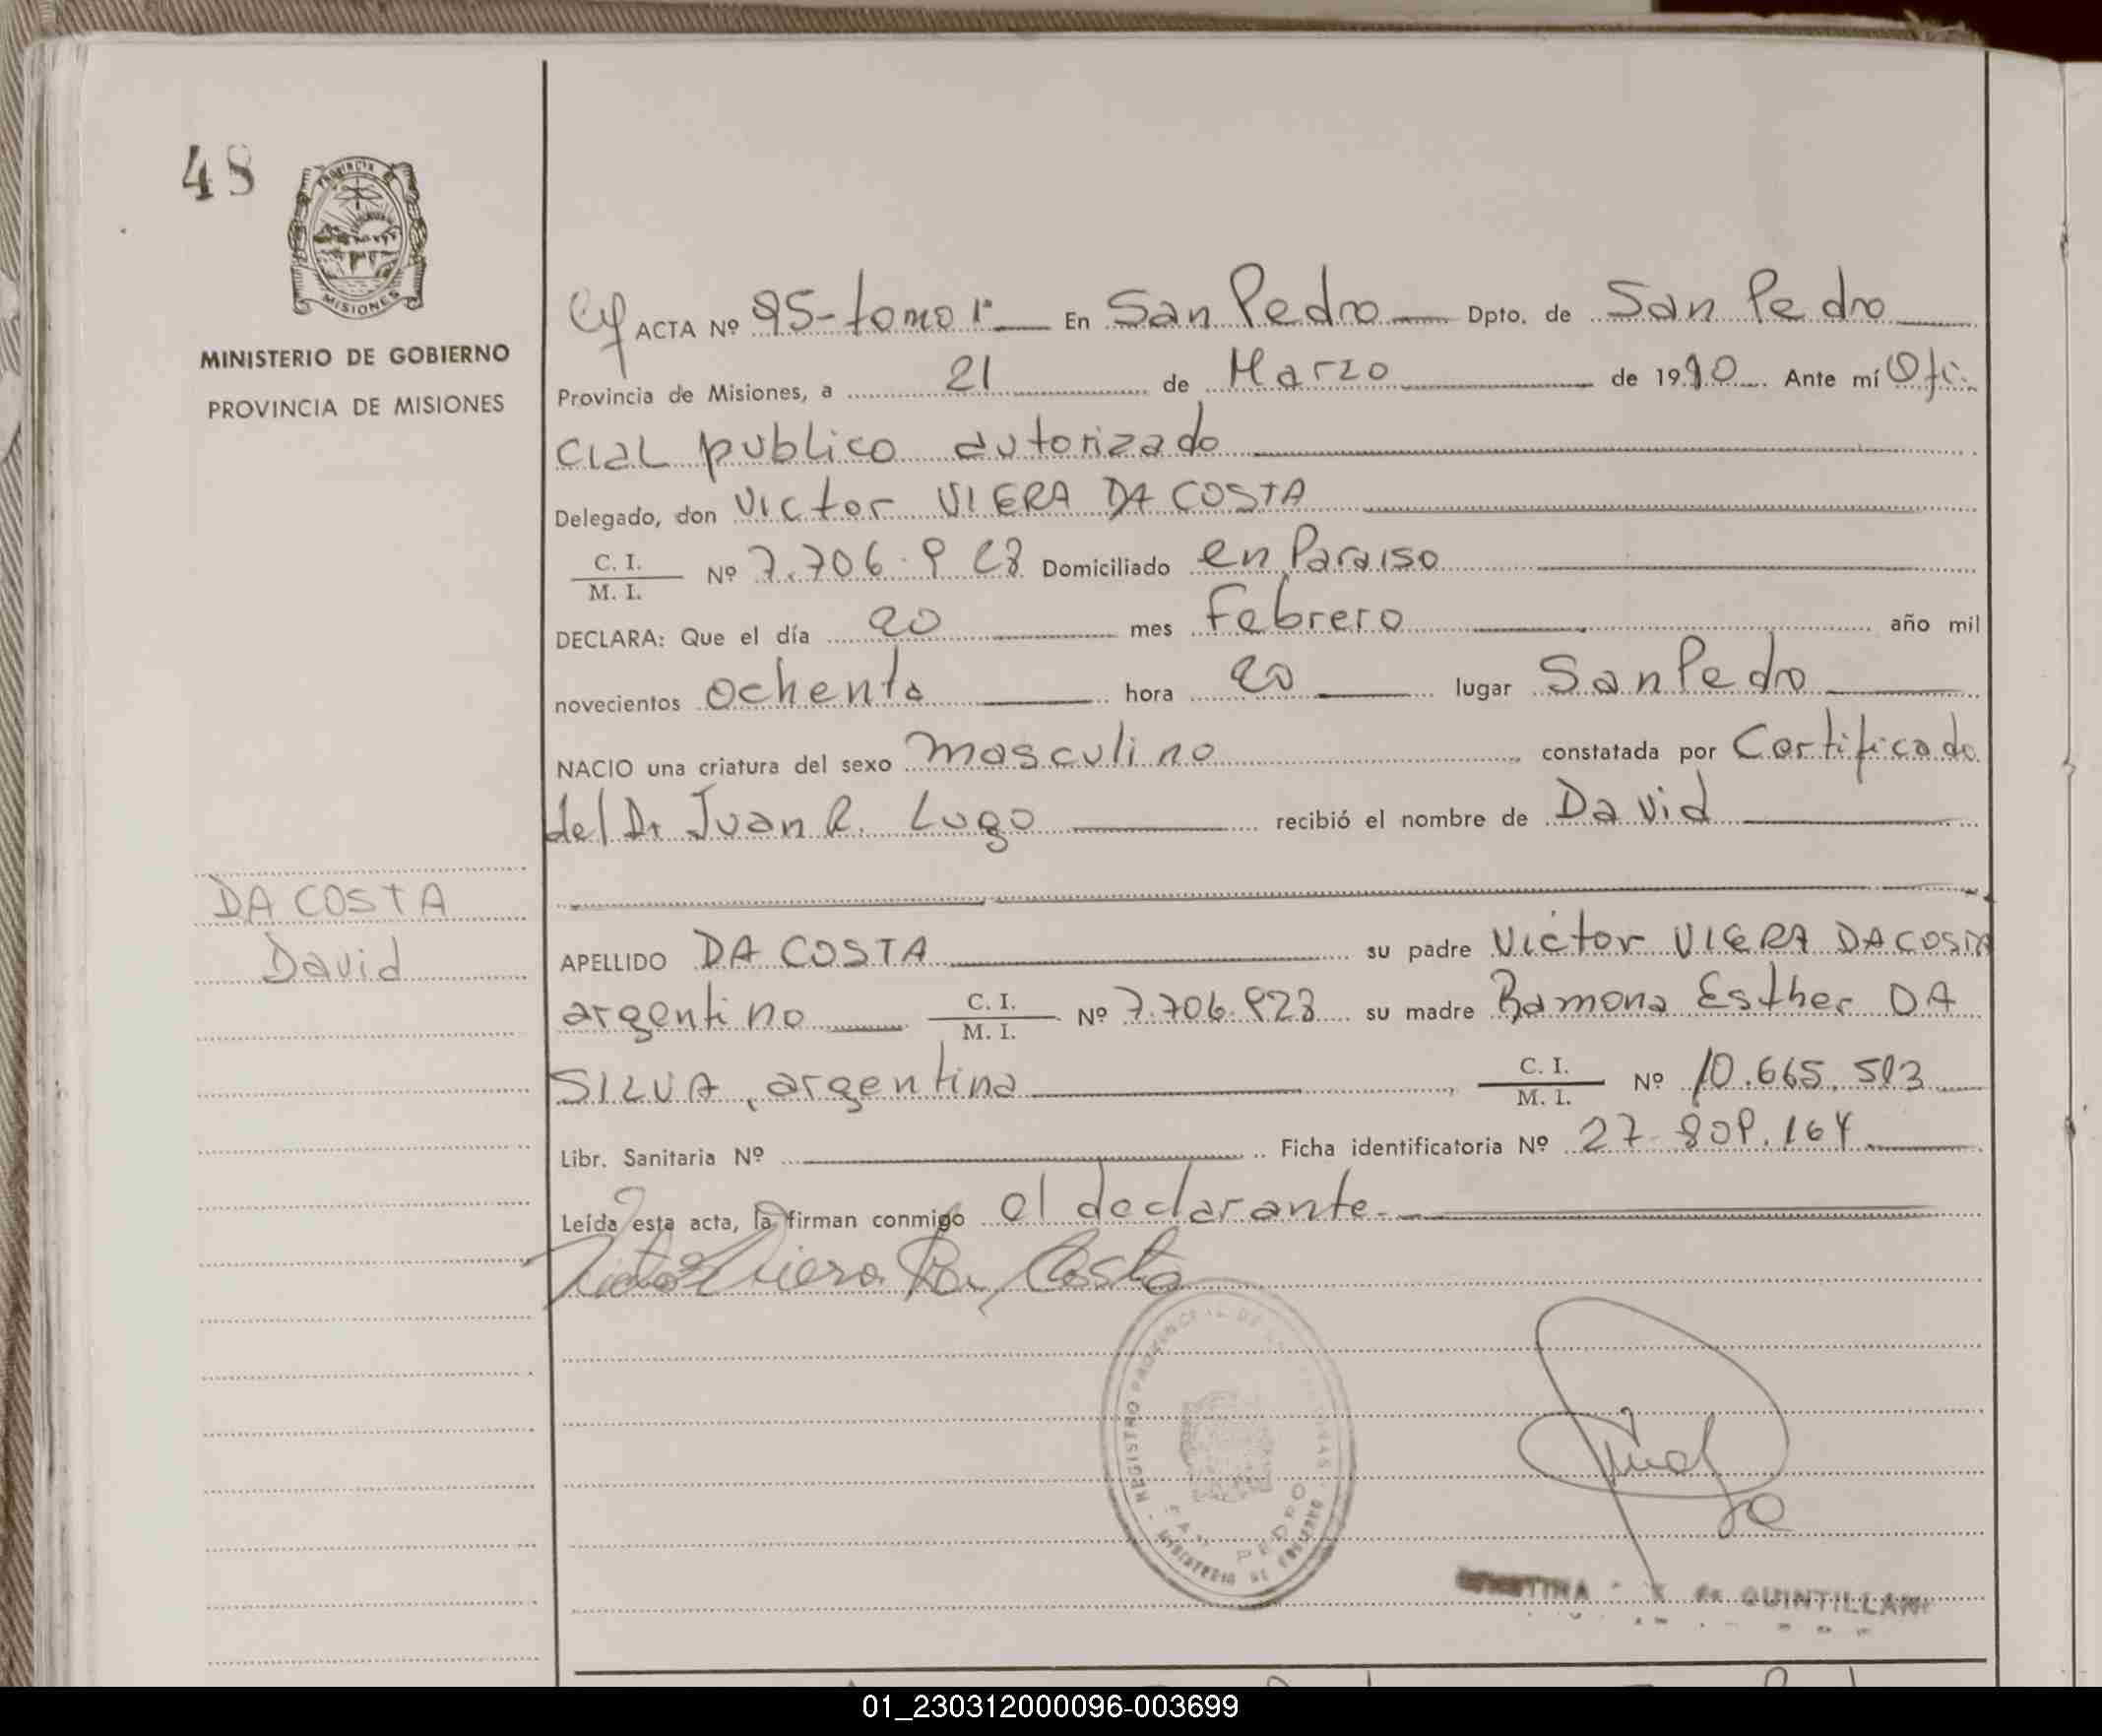 48
PROVINCIA
MISIONES
MINISTERIO DE GOBIERNO
PROVINCIA DE MISIONES
ACTA Nº 95-tomo 1º En San Pedro Dpto. de San Pedro
Provincia de Misiones, a 21 de Marzo de 1980 Ante mí Ofi-
cial publico autorizado
Delegado, don Victor VIERA DA COSTA
C. I.
M. I. Nº 7.706.928 Domiciliado en Paraiso
DECLARA: Que el día 20 mes Febrero año mil
novecientos ochenta hora 20 lugar San Pedro
NACIO una criatura del sexo masculino constatada por Certificado
del Dr Juan R. Lugo recibió el nombre de David
DA COSTA
David
APELLIDO DA COSTA su padre Victor VIERA DA COSTA
argentino C. I.
M. I. Nº 7.706.928 su madre Ramona Esther DA
SILVA, argentina, C. I.
M. I. Nº 10.665.503
Libr. Sanitaria Nº Ficha identificatoria Nº 27.809.164
Leída esta acta, la firman conmigo el declarante.-
Victor Viera Da Costa
REGISTRO PROVINCIAL DE LAS PERSONAS - MINISTERIO DE GOBIERNO
SAN PEDRO
QUINTILLAN
01_230312000096-003699